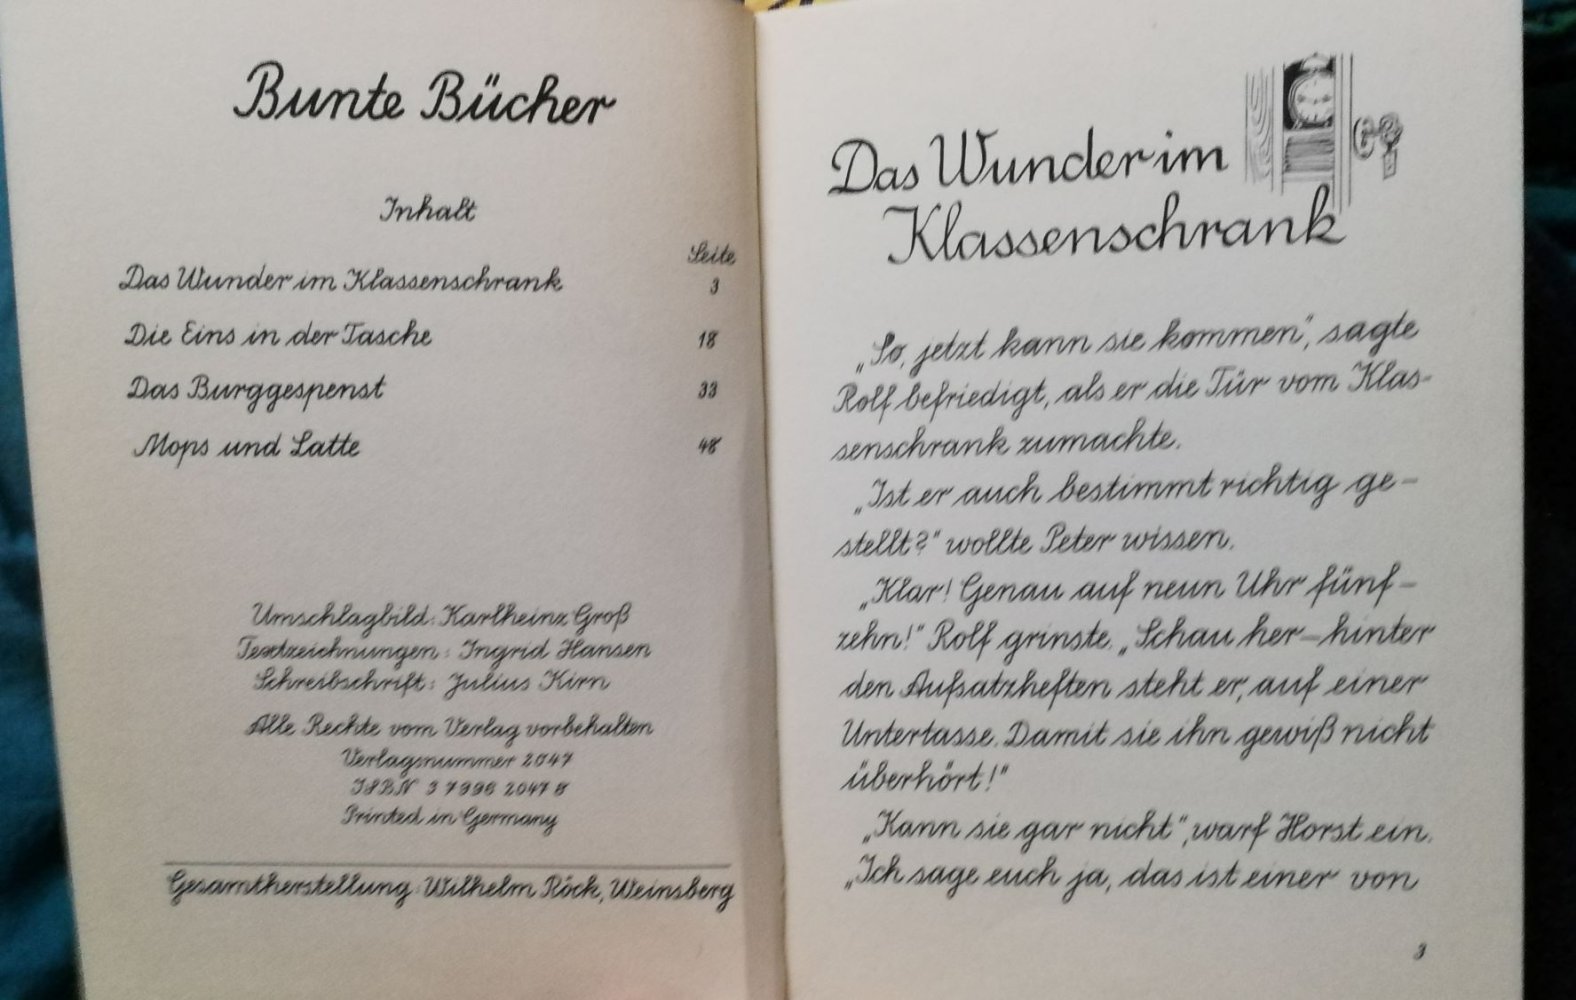 Bunte Bücher
Inhalt
Seite
Das Wunder im Klassenschrank 3
Die Eins in der Tasche 18
Das Burggespenst 33
Mops und Latte 48
Umschlagbild: Karlheinz Groß
Textzeichnungen: Ingrid Hansen
Schreibschrift: Julius Kirn
Alle Rechte vom Verlag vorbehalten
Verlagsnummer 2047
ISBN 3 7996 2047 8
Printed in Germany
Gesamtherstellung: Wilhelm Röck, Weinsberg
Das Wunder im
Klassenschrank
„So, jetzt kann sie kommen“, sagte
Rolf befriedigt, als er die Tür vom Klas-
senschrank zumachte.
„Ist er auch bestimmt richtig ge-
stellt?“ wollte Peter wissen.
„Klar! Genau auf neun Uhr fünf-
zehn!“ Rolf grinste. „Schau her – hinter
den Aufsatzheften steht er, auf einer
Untertasse. Damit sie ihn gewiß nicht
überhört!“
„Kann sie gar nicht“, warf Horst ein.
„Ich sage euch ja, das ist einer von
3